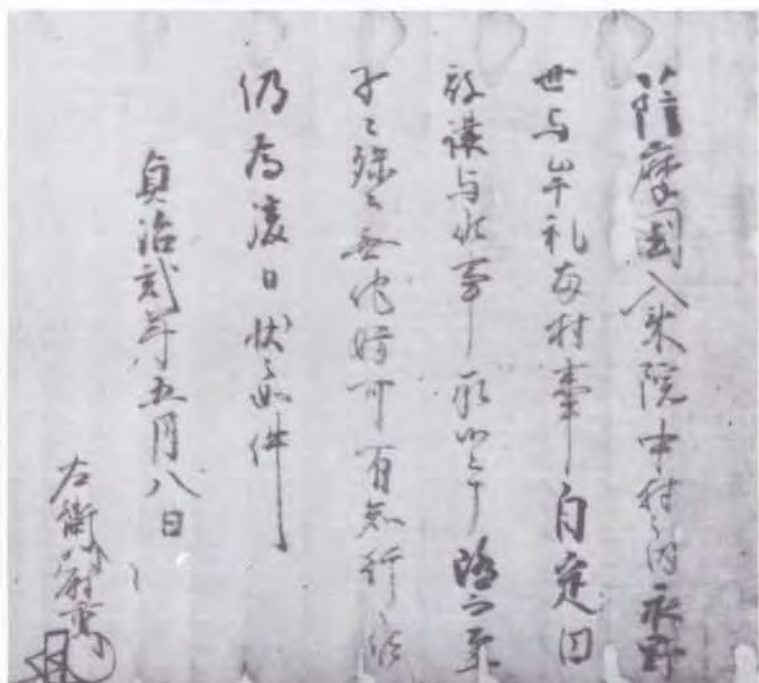 薩摩国入来院中村之内永野
世与牟礼両村事自定円
譲与 事 随而至
子々孫々無他妨可有知行候
仍為後日状如件
貞治弐年五月八日
右衛門尉重